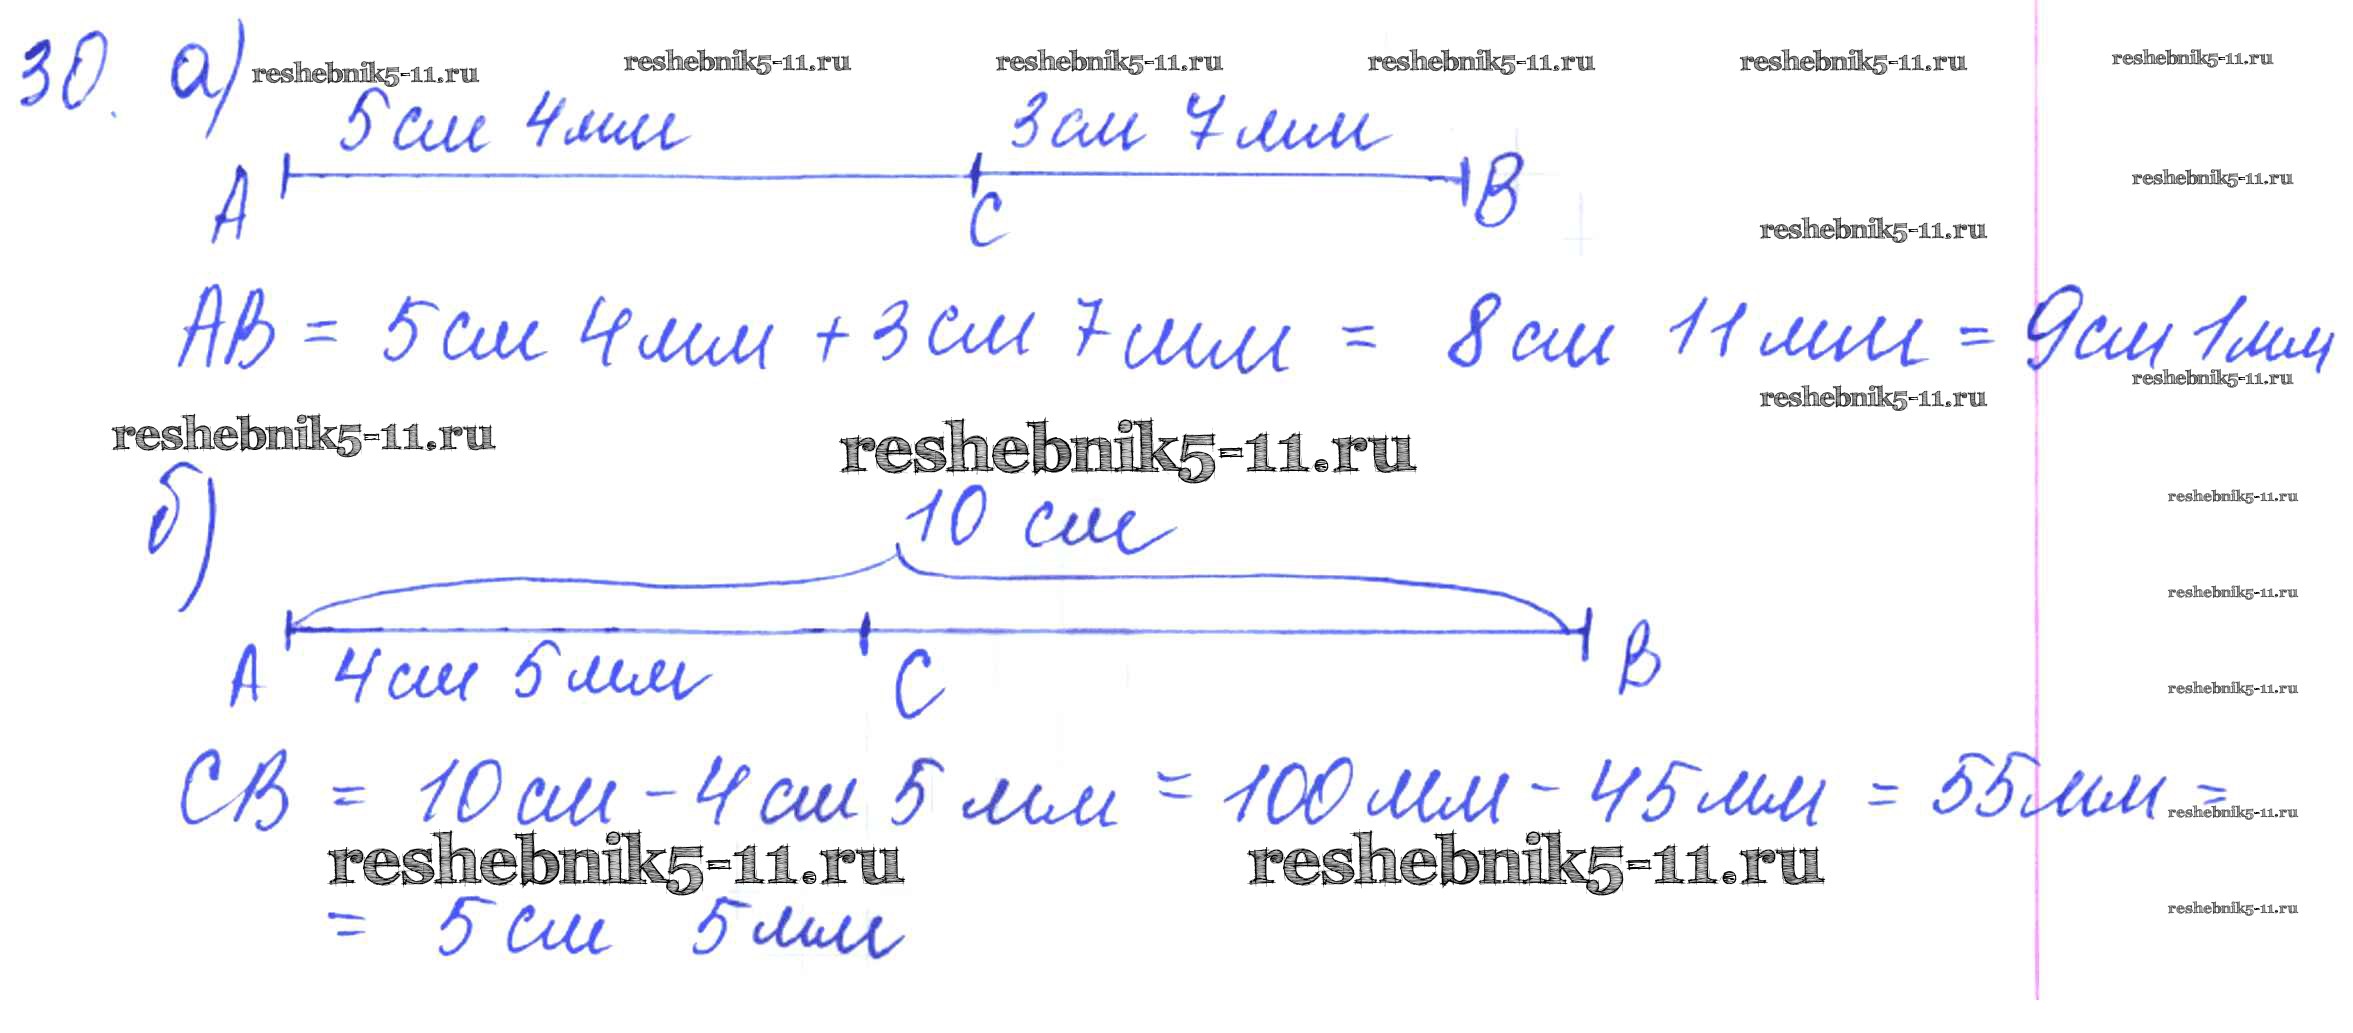 30. а) reshebnik5-11.ru reshebnik5-11.ru reshebnik5-11.ru reshebnik5-11.ru reshebnik5-11.ru reshebnik5-11.ru
5см 4мм 3см 7мм
A C B
reshebnik5-11.ru
reshebnik5-11.ru
AB = 5см 4мм + 3см 7мм = 8см 11мм = 9см 1мм
reshebnik5-11.ru reshebnik5-11.ru
reshebnik5-11.ru reshebnik5-11.ru
б) 10 см
reshebnik5-11.ru
reshebnik5-11.ru
A 4см 5мм C B
reshebnik5-11.ru
CB = 10см - 4см 5мм = 100мм - 45мм = 55мм =
reshebnik5-11.ru
reshebnik5-11.ru reshebnik5-11.ru
= 5см 5мм
reshebnik5-11.ru